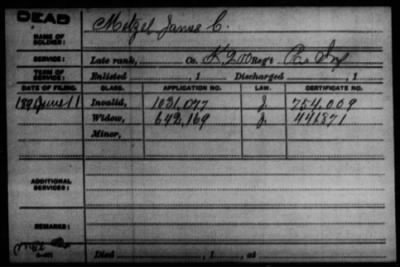 DEAD
NAME OF SOLDIER: Metzel James C.
SERVICE: Late rank, Co. K, 200 Reg't Pa Inf
TERM OF SERVICE: Enlisted , 1 Discharged , 1
DATE OF FILING. CLASS. APPLICATION NO. LAW. CERTIFICATE NO.
189 June 11 Invalid, 1031,077 J. 754.009
Widow, 642,169 J. 441871
Minor,
ADDITIONAL SERVICES:
REMARKS:
Died , 1 , at